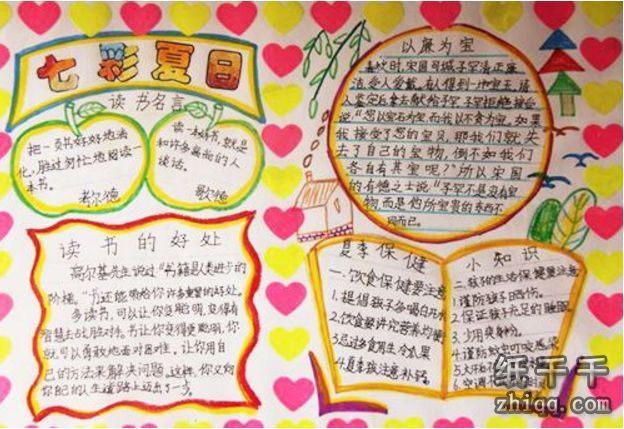 七彩夏日
读书名言
把一页书好好地消
化,胜过匆忙地阅读一
本书。
读一本好书,就是
和许多高尚的人
谈话。
歌德
读书的好处
高尔基先生说过"书籍是人类进步的
阶梯。"书还能带给你许多重要的好处。
多读书,可以让你变聪明,变得有
智慧去战胜对手。书让你变得更聪明,你
就可以勇敢地面对困难。让你用自
己的方法来解决问题。这样,你又向
你自己的人生道路上迈出了一步。
以廉为宝
春秋时,宋国司城子罕清正廉
洁,受人爱戴。有人得到一块宝玉,请
人鉴定后拿去献给子罕,子罕拒绝接受,
说:"您以宝石为宝,而我以不贪为宝。如果
我接受了您的宝贝,那我们就失
去了自己的宝物,倒不如我们
各自有其宝呢?"所以宋国
的有德之士说"子罕不是没有宝
物,而是他所宝贵的东西不
同而已。
夏季保健
一.饮食保健要注意
1.提倡孩子多喝白开水
2.饮食要讲究营养均衡
3.忌过多食用生冷瓜果
4.夏季孩注意补锌。
小知识
二.孩子的生活保健要注意
1.谨防孩子晒伤。
2.保证孩子充足的睡眠
3.少用爽身粉。
4.谨防蚊虫叮咬感染
6.空调
纸千千
zhiqq.com